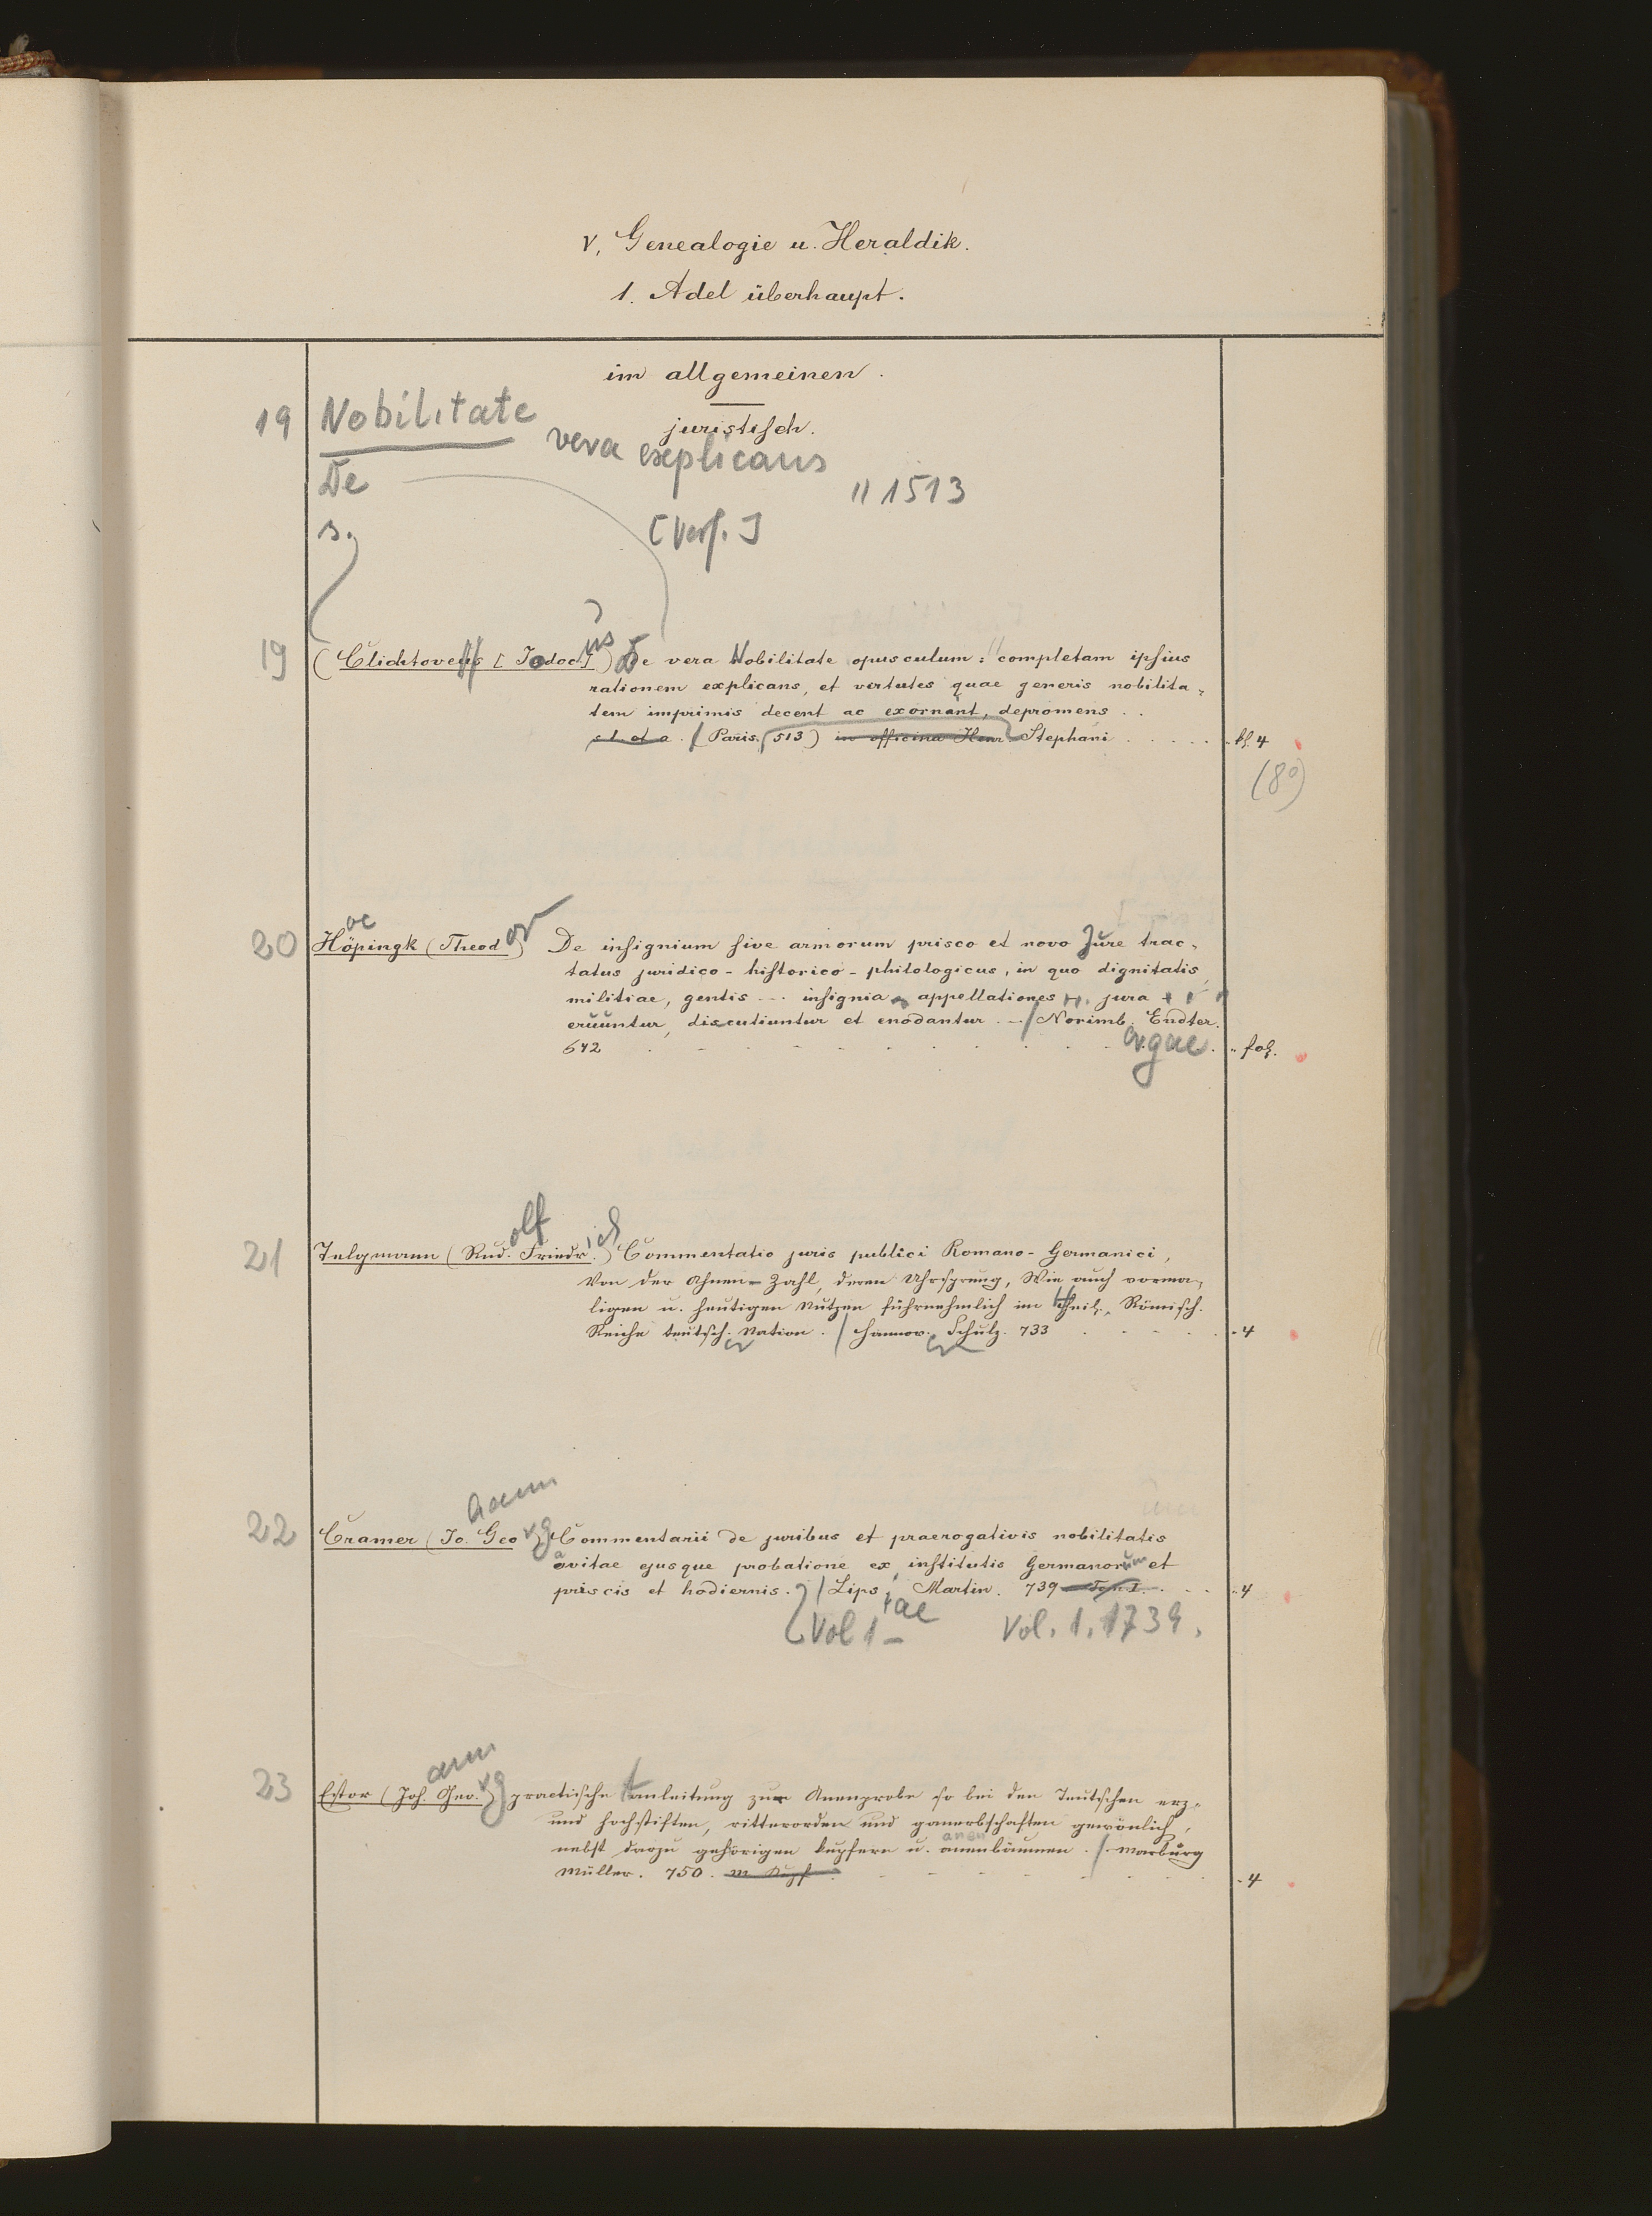 V. Genealogie u. Heraldik.
1. Adel überhaupt.
im allgemeinen.
juristisch.
19 Nobilitate
vera explicans
De
" 1513
s.
[Verf.]
19 (Clichtoveus [Jodoc]us) De vera Nobilitate opusculum: " completam ipsius
rationem explicans, et virtutes quae generis nobilita-
tem imprimis decent ac exornant, depromens . .
s. l. et a. / (Paris. 513) in officina Henr Stephani . . . . . kl. 4
(8°)
20 Höpingk (Theodor) De insignium sive armorum prisco et novo Jure trac-
oe
tatus juridico-historico-philologicus, in quo dignitatis,
militiae, gentis --- insignia appellationes jura
eruuntur, discutiuntur et enodantur. - / Norimb. Endter.
642 . . . . . . . fol.
ergae
21 Telgmann (Rudolf Friedrich) Commentatio juris publici Romano-Germanici,
Von der Ahnen-Zahl, deren Uhrsprung, Wie auch vorma-
ligen u. heutigen Nutzen führnehmlich im Heil. Römisch.
Reiche teutsch. Nation. / Hannov. Schulz. 733 . . . . . 4
22 Cramer (Jo. Georg) Commentarii de juribus et praerogativis nobilitatis
hann
avitae ejusque probatione ex institutis Germanorum et
priscis et hodiernis. / Lips. Martin. 739 Tom I. . . . 4
iae
Vol 1 - Vol. 1. 1739.
23 Estor (Joh. Geo.rg) practische anleitung zur Anenprobe so bei den Teutschen erz-
ann
und hochstiften, ritterorden und ganerbschaften gewönlich,
nebst darzu gehörigen kupfern u. anenbäumen. / Marburg
anen
Müller. 750. m. Kupf. . . . . . 4